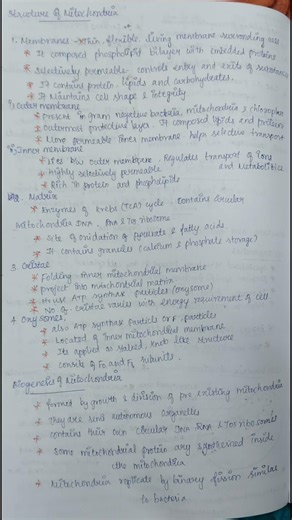 Structure of Mitochondria
1. Membranes - thin flexible living membrane surrounding cell
* It composed phospholipid bilayer with embided proteins
* Selectively permeable controls entry and exits of substances
* It contains protein, lipids and carbohydrates.
* It maintains cell shape & integrity
1) Outer membrane
* Present in gram negative bacteria, mitochondria & chloroplast
* Outermost protective layer. It composed lipids and proteins
* permeable helps selective transport
2) Inner membrane
* Lies below outer membrane. Regulates transport of ions and metabolites
* Highly selectively permeable
* Rich in protein and phospholipids
2. Matrix
* Enzymes of krebs (TCA) cycle - contains circular
mitochondria DNA, RNA & 70s ribosome
* Site of oxidation of pyruvate & fatty acids
* It contains granules (calcium & phosphate storage)
3. Cristae
* Folding inner mitochondrial membrane
* Project into mitochondrial matrix
* House ATP synthase particles (oxysome)
* No of cristae varies with energy requirement of cell
4. Oxysomes
* also ATP synthase particles or F. particles
* Located of inner mitochondrial membrane
* Its stalked, knob like structure
* consits of F0 and F1 subunits.
Biogenesis of Mitochondria
* formed by growth & division of pre existing mitochondria
* They are semi autonomous organelles
* contains their own circular DNA RNA & 70s ribosomes
* Some mitochondrial protein are synthesized inside
the mitochondria
* Mitochondria replicate by binary fission similar
to bacteria.